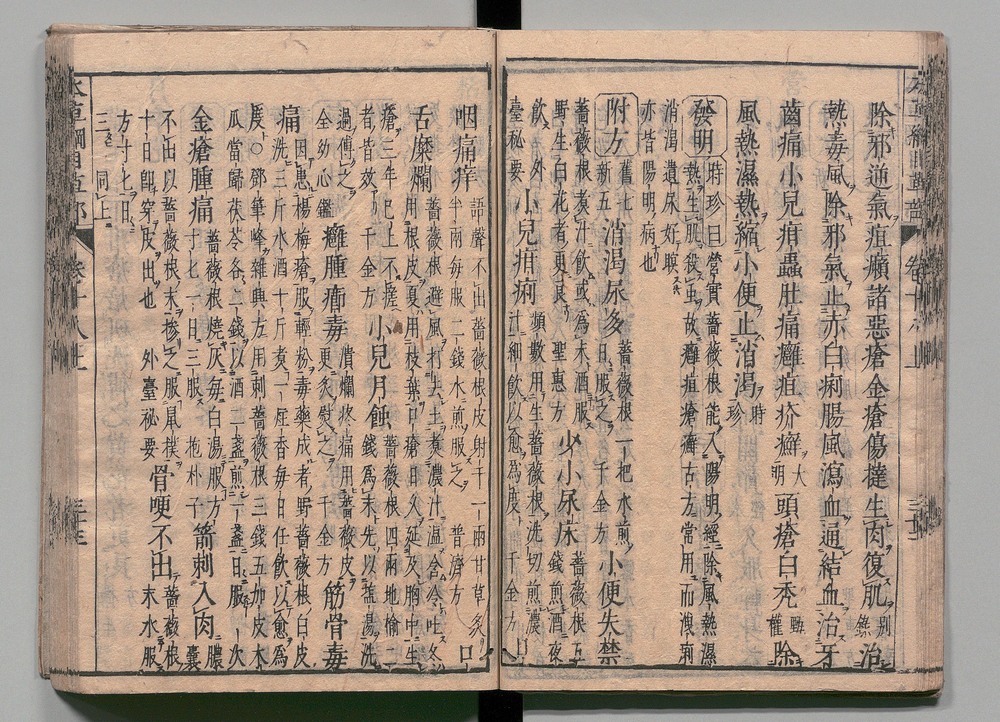 除邪逆氣疽癩諸惡瘡金瘡傷撻生肉復肌別錄治
熱毒風除邪氣止赤白痢腸風瀉血通結血治牙
齒痛小兒疳蟲肚痛癰疽疥癬大明頭瘡白禿甄權除
風熱濕熱縮小便止消渴時珍
發明時珍曰營實薔薇根能入陽明經除風熱濕
熱生肌殺虫故癰疽瘡癬古方常用而洩痢
消渴遺尿好瞑
亦皆陽明病也
附方舊七新五消渴尿多薔薇根一把水煎日服之千金方小便失禁
薔薇根煮汁飲或為末酒服
野生白花者更良聖惠方少小尿床薔薇根五錢煎酒夜
飲外臺秘要小兒疳痢頻數用生薔薇根洗切煎濃汁細飲以愈為度千金方
咽痛痒語聲不出薔薇根皮射干一兩甘草炙
半兩每服二錢水煎服之普濟方口
舌糜爛薔薇根避風打去土煮濃汁溫含冷吐冬
用根皮夏用枝葉口瘡日久延及胸中生
瘡三年已上不瘥者皆效千金方小兒月蝕薔薇根四兩地榆二錢為末先以塩湯洗
過傅之全幼心鑑癰腫癤毒潰爛疼痛用薔薇皮更炙熨之千金方筋骨毒
痛因患楊梅瘡服輕粉毒藥成者野薔薇根白皮
洗三斤水酒十斤煮一炷香每日任飲以愈為
度○鄧筆峰雜興方用刺薔薇根三錢五加皮木
瓜當歸茯苓各二錢以酒二盞煎一盞日服一次
金瘡腫痛薔薇根燒灰每白湯服方寸匕一日三服抱朴子箭刺入肉膿囊
不出以薔薇根末摻之服鼠撲
十日即穿皮出也外臺秘要骨哽不出薔薇根末水服
方寸匕日三同上